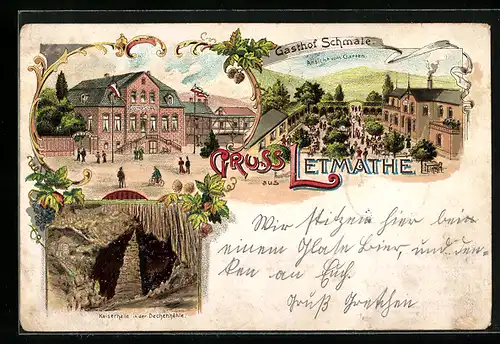 Gasthof Schmale.
Ansicht vom Garten.
GRUSS
aus
LETMATHE
Wir sitzen hier beim
einem Glase Bier, und den-
ken an Euch
Gruß Gretchen
Kaiserhalle in der Dechenhöhle.